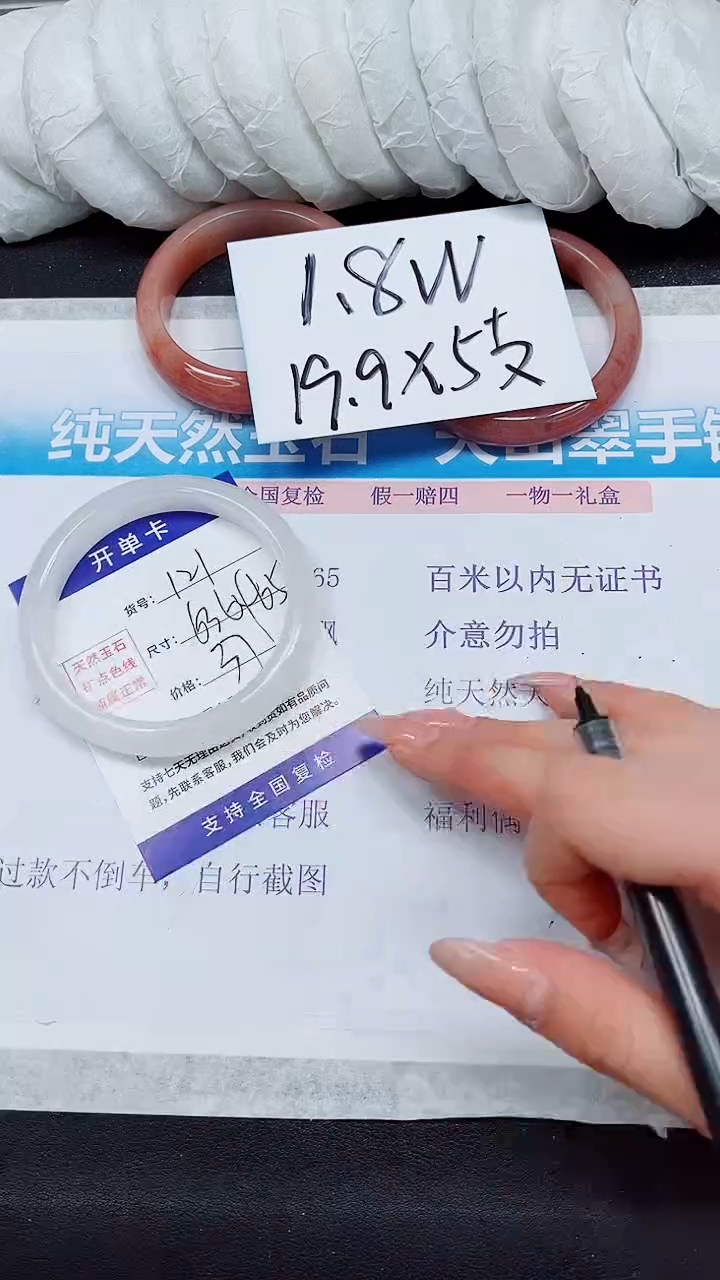 1.8W
19.9X5支
纯天然玉石
翠手镯
全国复检 假一赔四 一物一礼盒
开单卡
货号: 121
尺寸: 636465
价格:
天然玉石
矿点色线
65
百米以内无证书
介意勿拍
纯天然天
支持七天无理由
如有品质问
题,先联系客服,我们会及时为您解决。
支持全国复检
客服
福利
过款不倒车,自行截图